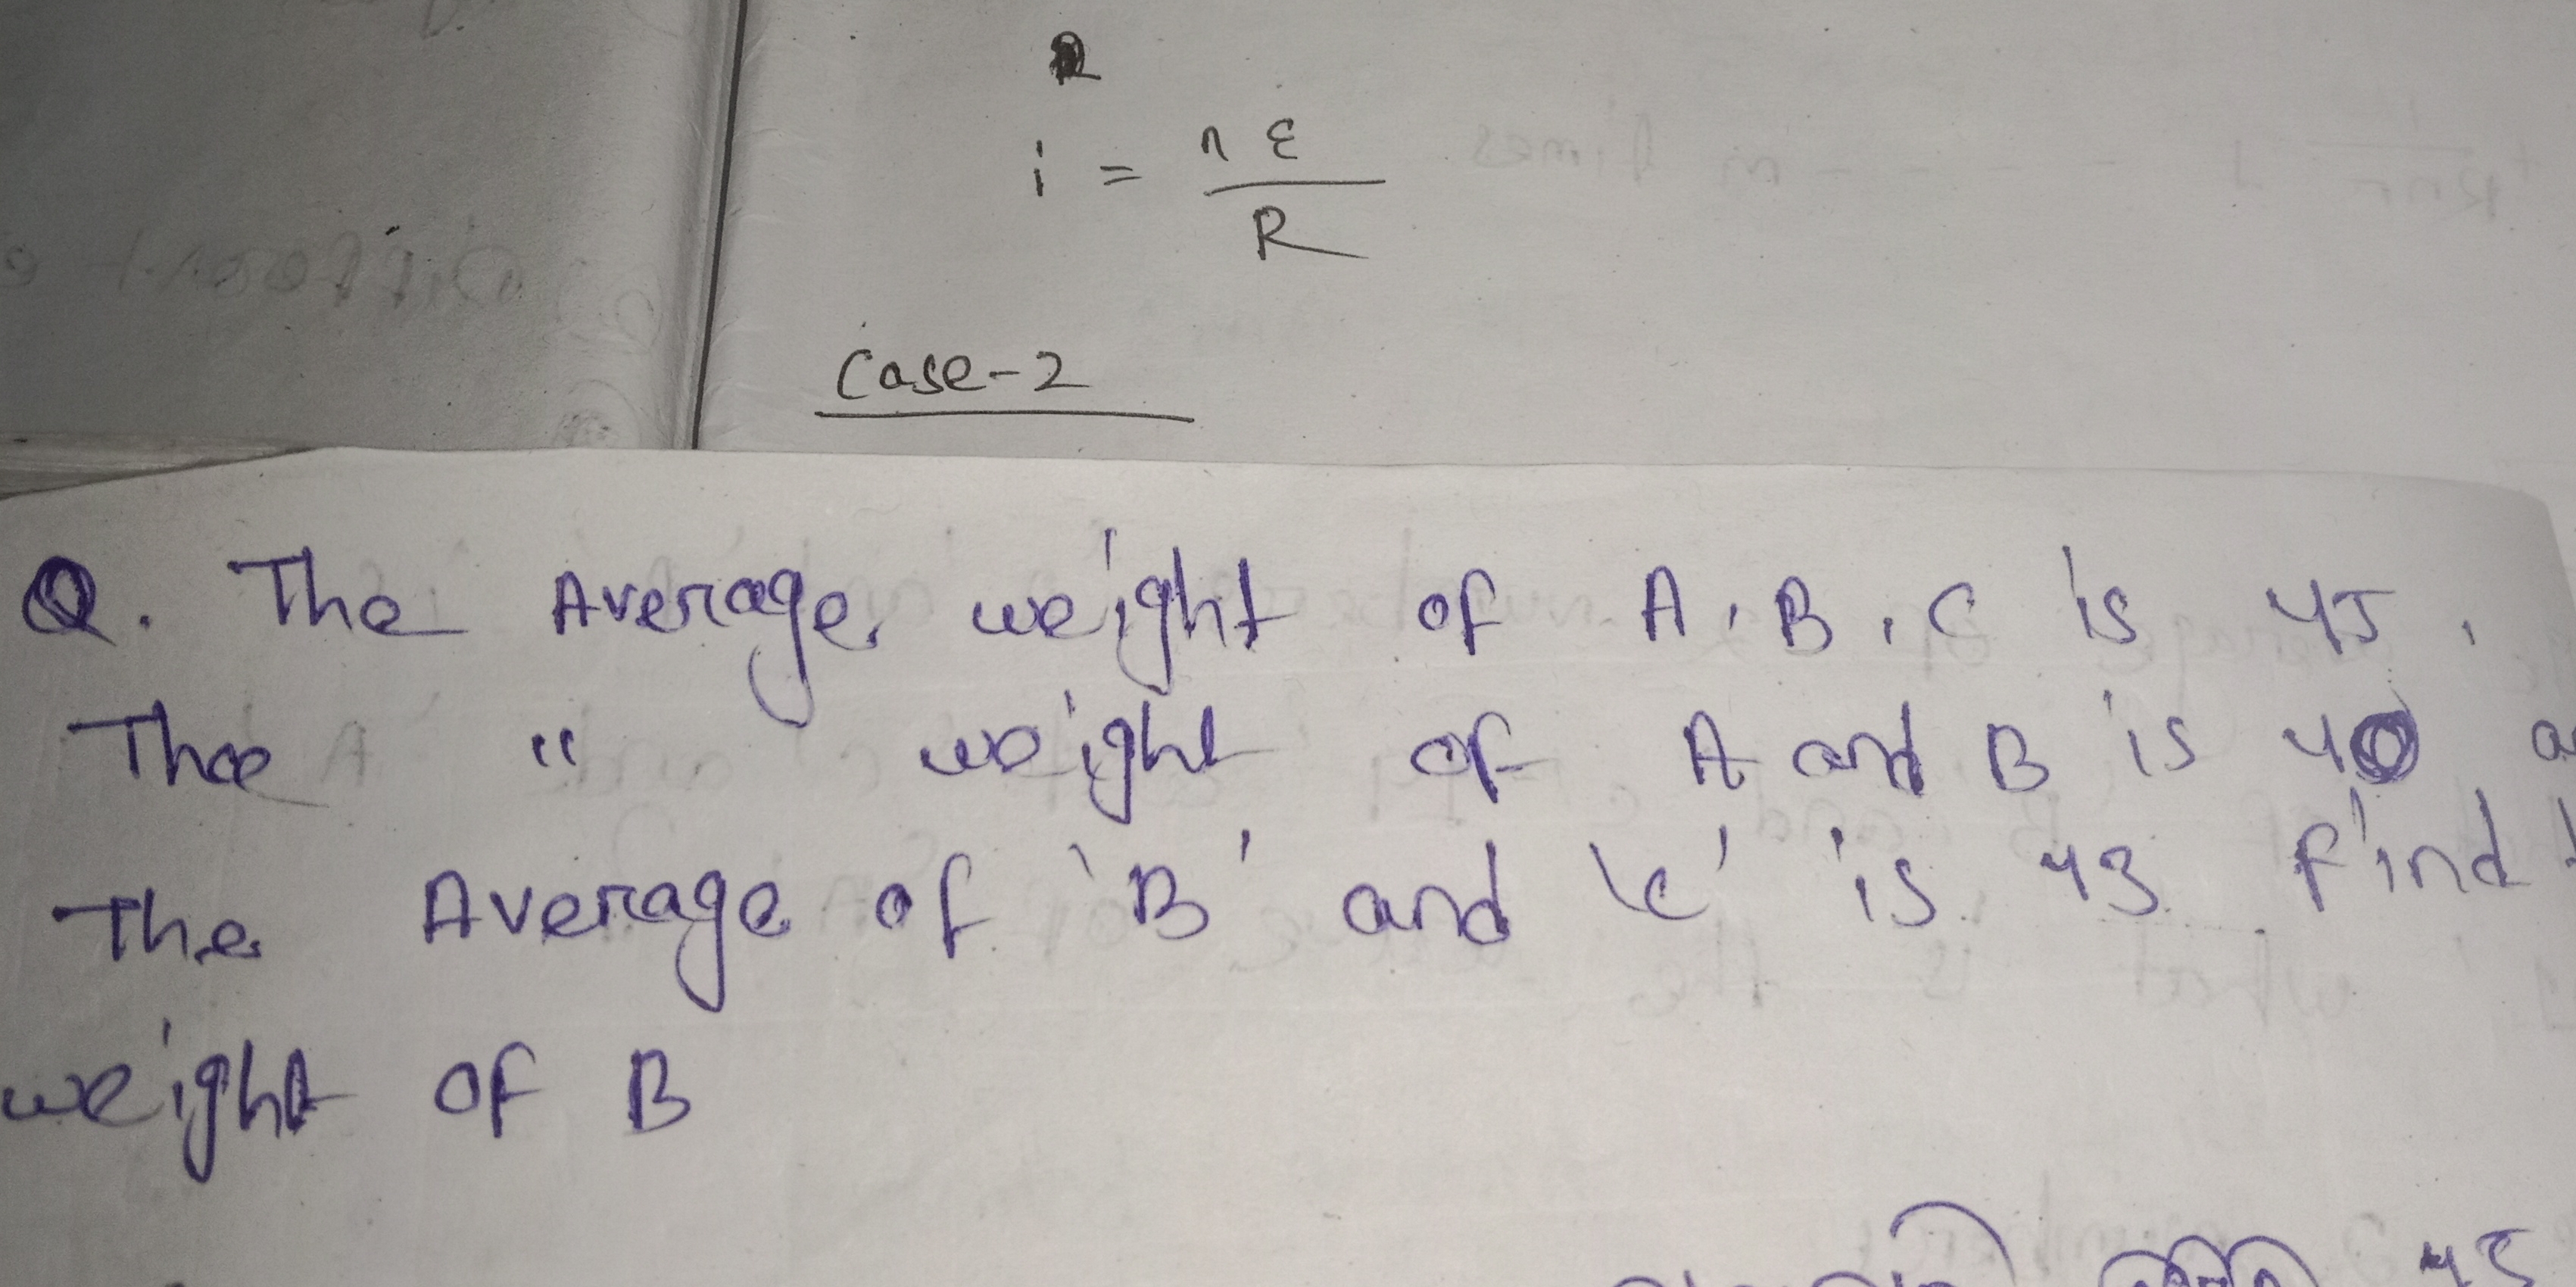 i = nε
R
Case-2
Q. The Average weight of A, B, C is 45,
The " weight of A and B is 40
The Average of 'B' and 'C' is 43. Find
weight of B